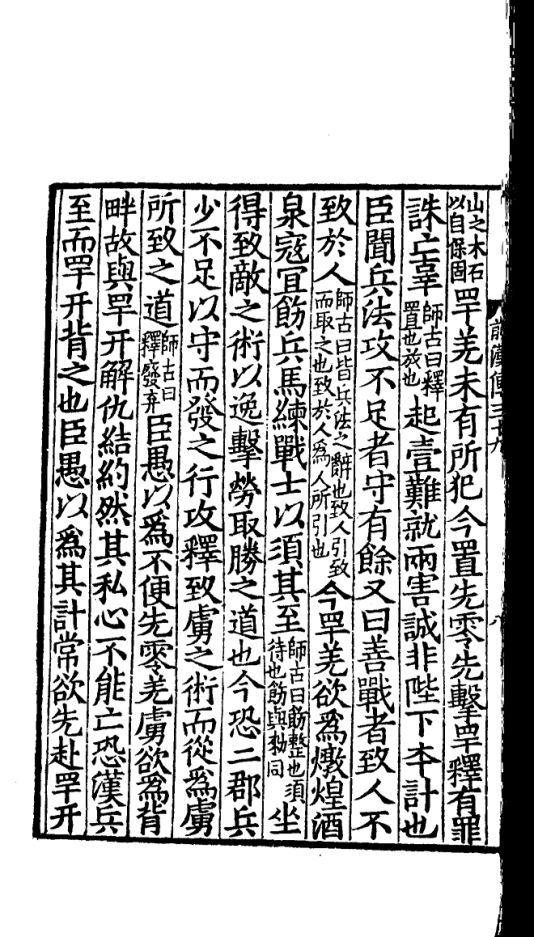 山之木石以自保固罕羌未有所犯今置先零先擊罕釋有罪
誅亡辜師古曰釋置也放也起壹難就兩害誠非陛下本計也
臣聞兵法攻不足者守有餘又曰善戰者致人不
致於人師古曰皆兵法之辭也致人引致而取之也致於人為人所引也今罕羌欲為燉煌酒
泉寇宜飭兵馬練戰士以須其至師古曰飭整也須待也飭與勑同坐
得致敵之術以逸擊勞取勝之道也今恐二郡兵
少不足以守而發之行攻釋致虜之術而從為虜
所致之道師古曰釋廢弃臣愚以為不便先零羌虜欲為背
畔故與罕开解仇結約然其私心不能亡恐漢兵
至而罕开背之也臣愚以為其計常欲先赴罕开